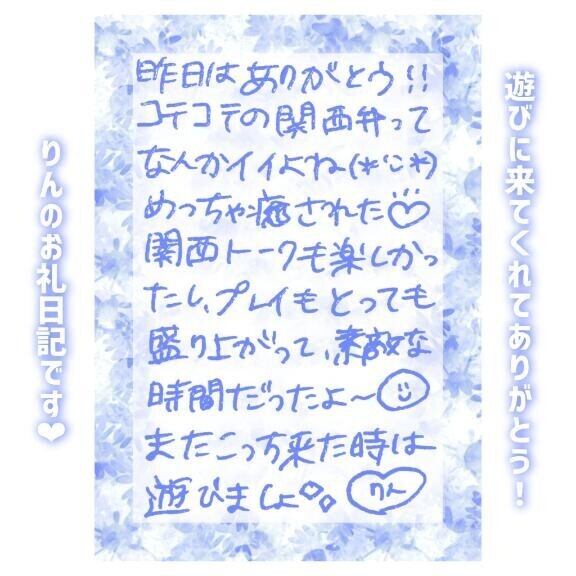 遊びに来てくれてありがとう!
昨日は ありがとう!!
コテコテの関西弁って
なんかイイよね(*'ω'*)
めっちゃ癒された♡
関西トークも楽しかっ
たし、プレイもとっても
盛り上がって、素敵な
時間だったよ〜☺
またこっち来た時は
遊びましょ
りん
りんのお礼日記です❤